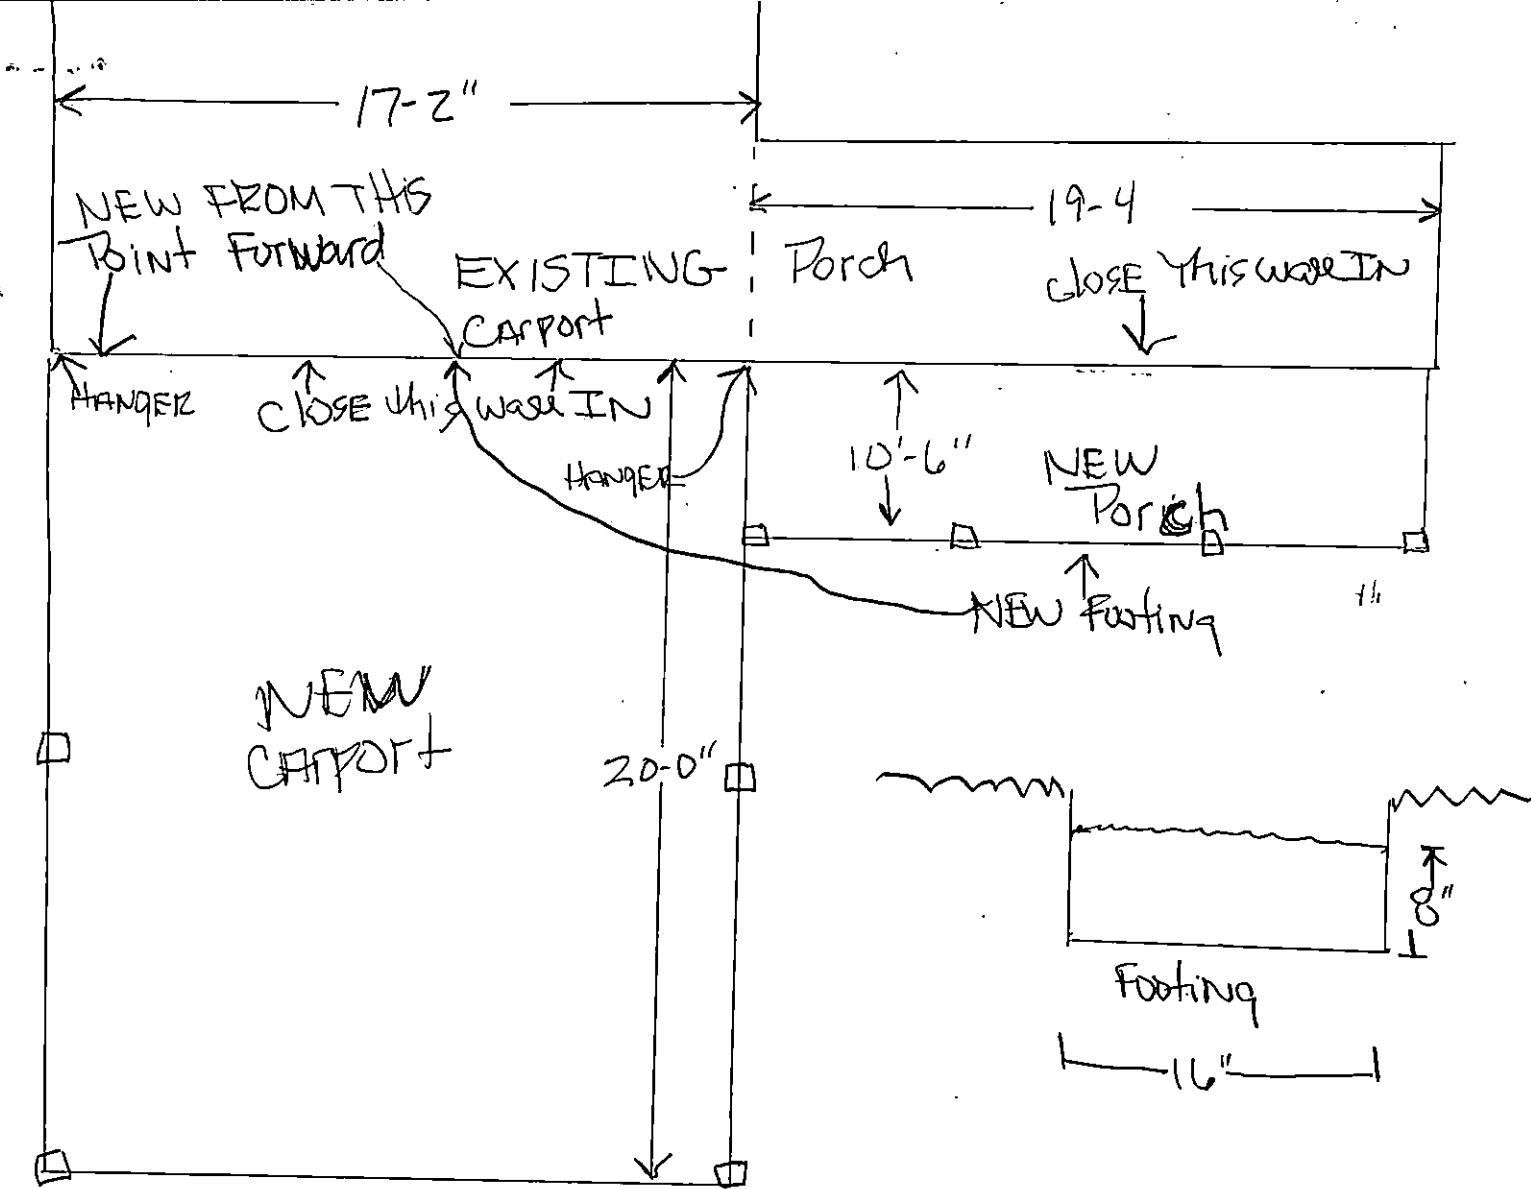 17-2"
NEW FROM THiS
Point Forward
19-4
EXISTING
CArport
Porch
closE This wall IN
HANgER
ClosE this wall IN
HANgER
10'-6"
NEW
Porch
NEW Footing
NEW
CArport
20-0"
8"
Footing
16"